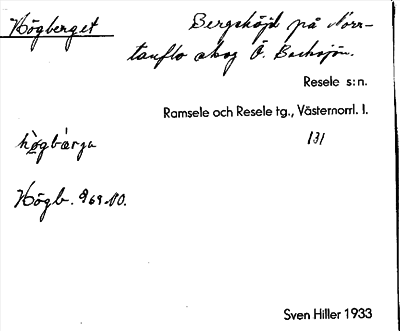 Högberget
Bergshöjd på Norr-
tanflo skog Ö. Backsjön.
Resele s:n.
Ramsele och Resele tg., Västernorrl. l.
131
Högb. 969.80.
Sven Hiller 1933